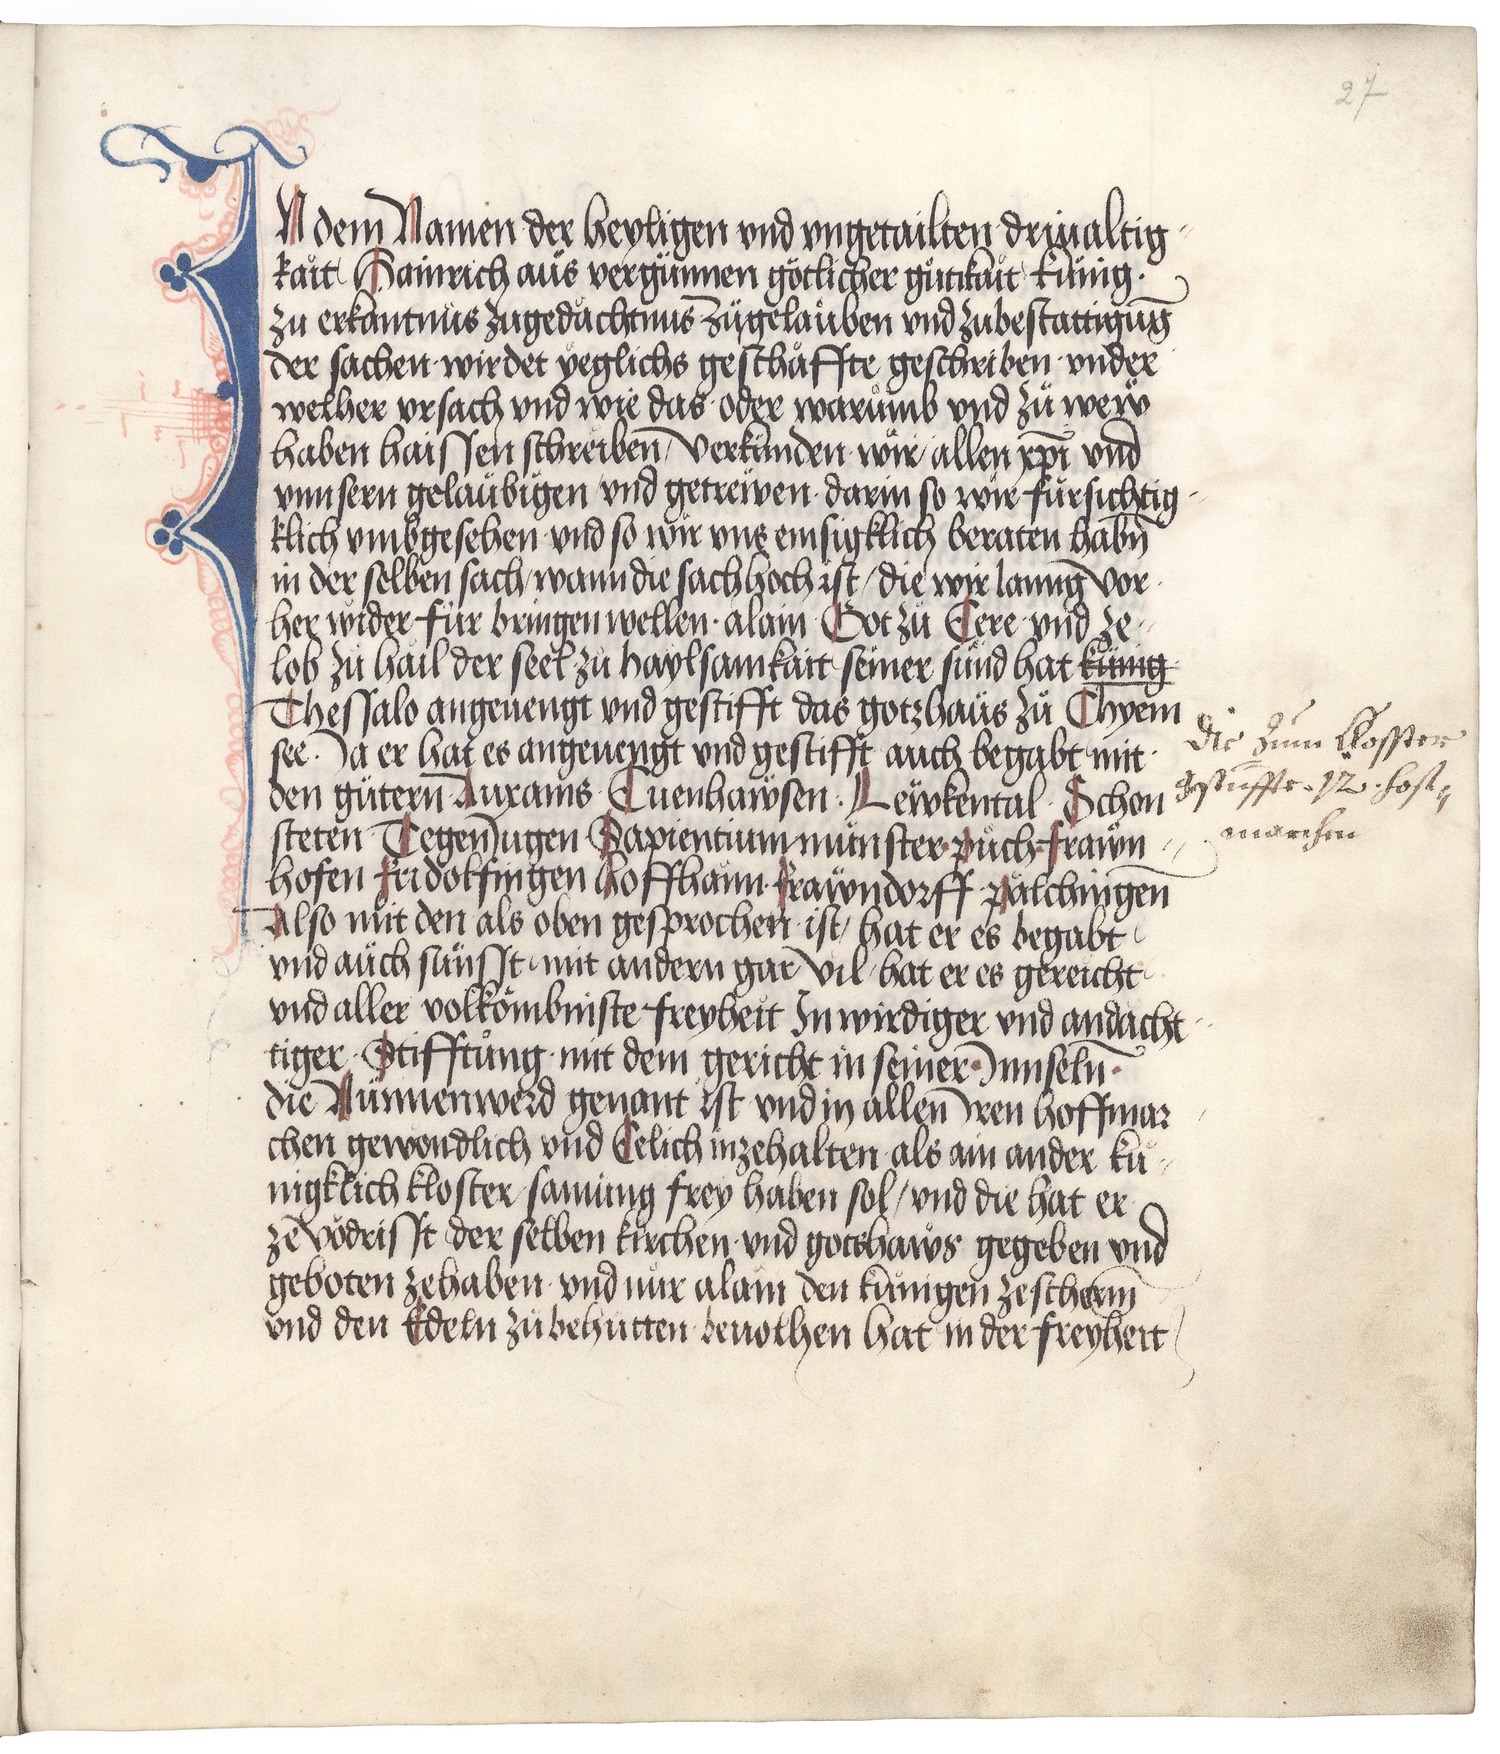 27
IN dem Namen der heyligen vnd vngetailten driualtig-
kait Hainrich aus vergünnen götlicher gütikait künig.
zu erkantnüs zugedächtnus zügelauben vnd zubestattigung
der sachen wirdet yeglichs geschäffte geschriben vnder
welher vrsach vnd wie das oder warumb vnd zü wew
haben haissen schreiben / verkünden wir / allen xpi vnd
vnnsern gelaubigen vnd getrewen darin so wir fürsichtig-
klich vmbgesehen vnd so wir vns emsigklich beraten habn
in der selben sach / wann die sach hoch ist / die wir lanng vor
her wider für bringen wellen. alain Got zu Eere vnd ze-
lob zu hail der seel zu haylsamkait seiner sünd hat künig
Thessalo angeuengt vnd gestifft das gotzhaus zü Chyem
see. Ja er hat es angeuengt vnd gestifft auch begabt mit
den gütern Auxams Euenhawsen. Lewkental Schon
steten Tegerndugen Sapientium münster püch frawn-
hofen Fridolfingen hoffhaim frawndorff palchingen
Also mit den als oben gesprochen ist / hat er es begabt
vnd auch sünsst mit andern gar vil / hat er es gereicht
vnd aller volkömbniste freyheit In wirdiger vnd andächt-
tiger Stifftung mit dem gericht in seiner Innseln
die Nunnenwerd genant ist vnd in allen Iren hoffmar
chen gewondlich vnd Eelich inzehalten als ain ander kü-
nigklich kloster samung frey haben sol / vnd die hat er
ze vödrisst der selben kirchen vnd gotshaws gegeben vnd
geboten zehaben vnd nur alain den künigen zescherm
vnd den Edeln zu behütten beuolhen hat in der freyheit
die zum Closster
gestüffte 12 hof-
marchen